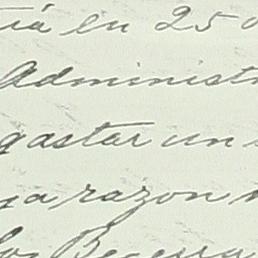 en 25
Administ
gastar un
razon
los Becerra